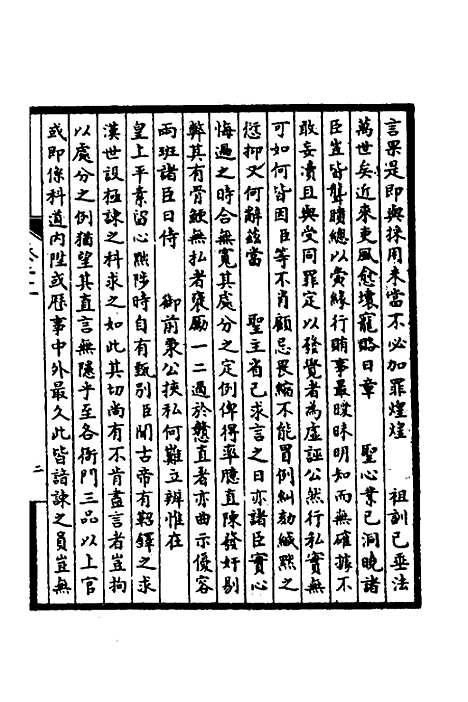 言果是即與採用未當不必加罪煌煌　　祖訓已垂法
萬世矣近來吏風愈壞寵賂日章　　聖心業已洞曉諸
臣豈皆聾瞶總以夤緣行賄事最曖昧明知而無確據不
敢妄瀆且與受同罪定以發覺者為虛誣公然行私實無
可如何皆因臣等不肖顧忌畏縮不能冒例糾劾緘默之
愆抑又何辭茲當　　聖主省己求言之日亦諸臣實心
悔過之時合無寬其處分之定例俾得率臆直陳發奸剔
弊其有骨鯁無私者褒勵一二過於戇直者亦曲示優容
兩班諸臣日侍　　御前秉公挾私何難立辨惟在
皇上平素留心黜陟時自有甄別臣聞古帝有鞀鐸之求
漢世設極諫之科求之如此其切尚有不肯盡言者豈拘
以處分之例猶望其直言無隱乎至各衙門三品以上官
或即係科道內陞或歷事中外最久此皆諳諫之員豈無
二